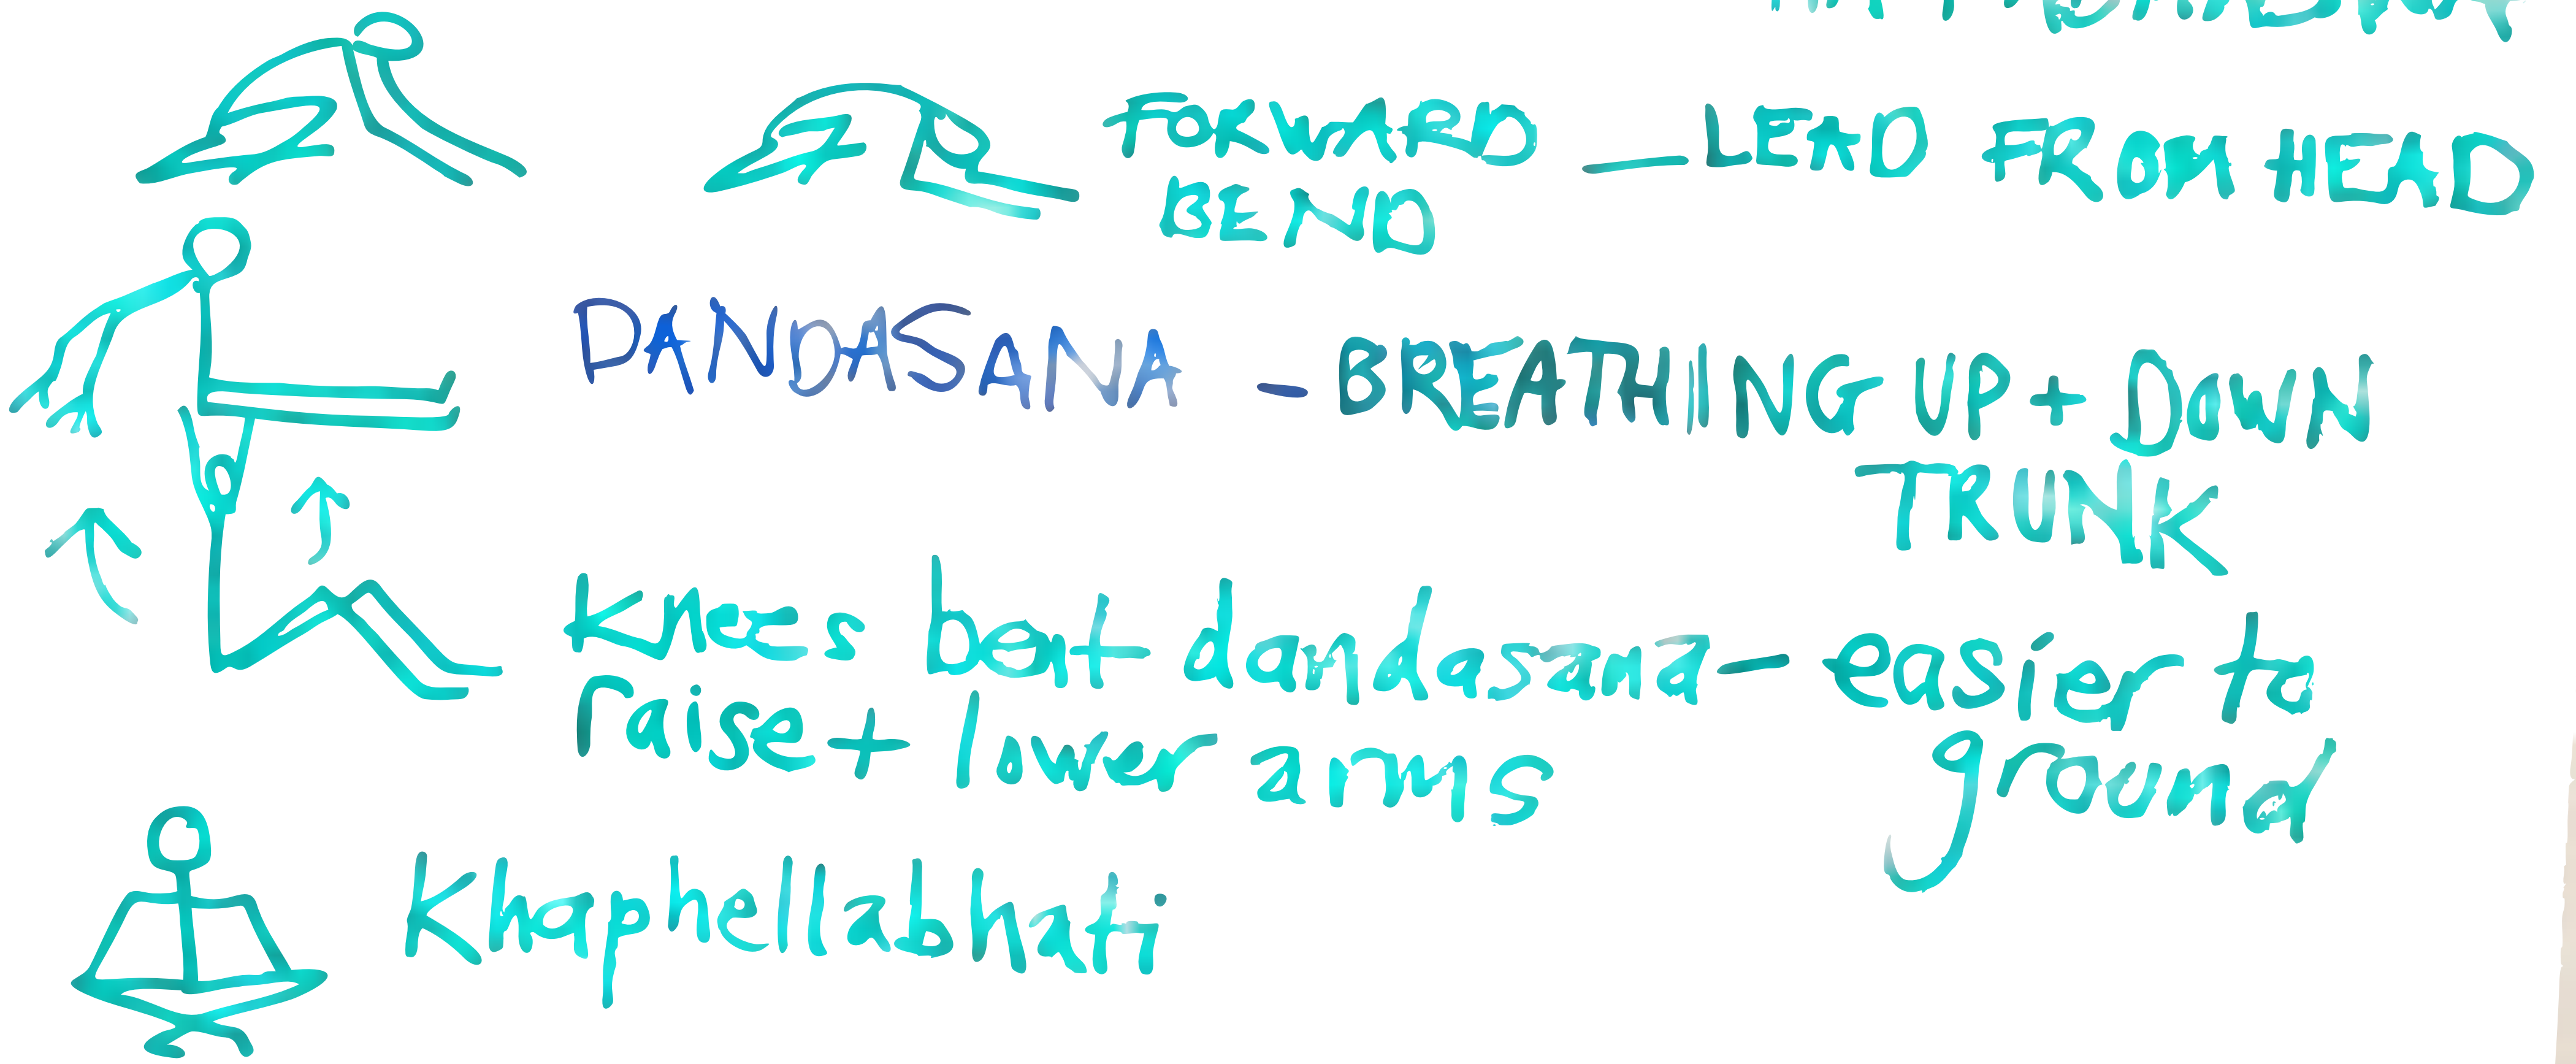 FORWARD — LEAD FROM HEAD
BEND
DANDASANA - BREATHING UP + DOWN
TRUNK
Knees bent dandasana - easier to
raise + lower arms ground
Khaphellabhati